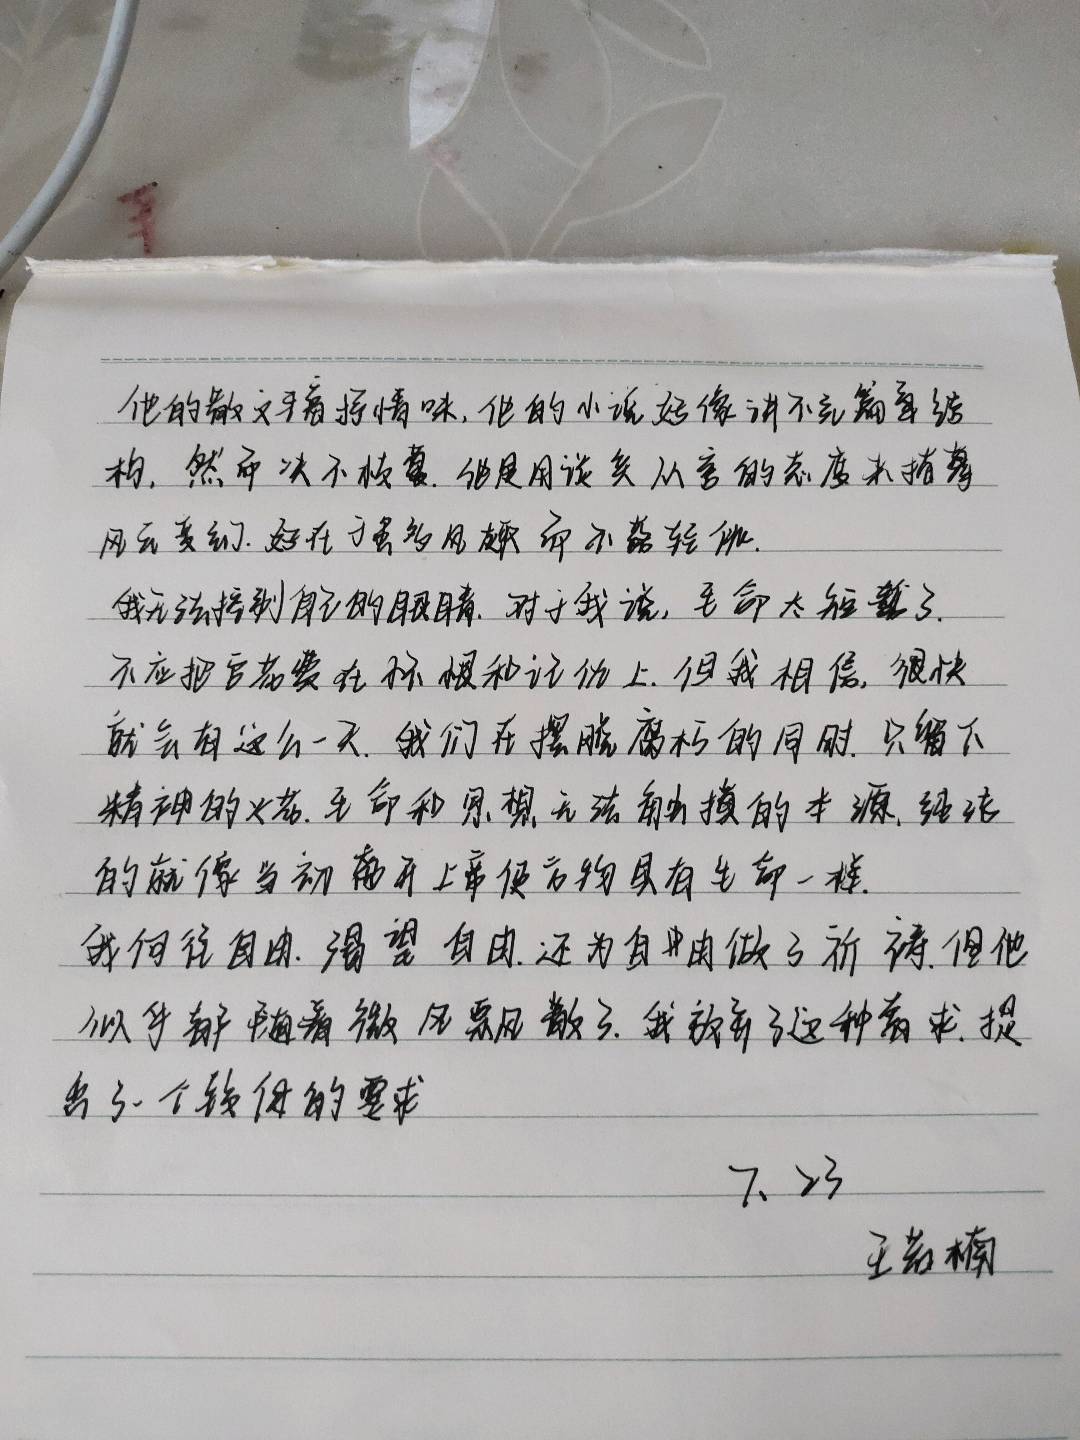 他的散文平蓄抒情味，他的小说好像讲不究篇章结
构，然而决不枝蔓．他是用谈笑从容的态度来描摹
风云变幻．好在于含多风趣而不落轻佻．
我无法接到自己的眼睛．对于我说，生命太短暂了．
不应把它花费在怀恨和记仇上．但我相信，很快
就会有这么一天．我们在摆脱腐朽的同时．只留下
精神的火花．生命和思想无法触摸的本源．经济
的就像当初离开上帝使万物具有生命一样．
我何往自由．渴望自由．还为自由做了祈祷．但他
似乎都随着微风飘散了．我放弃了这种苛求．提
出了一个较低的要求
7、23
王敬楠